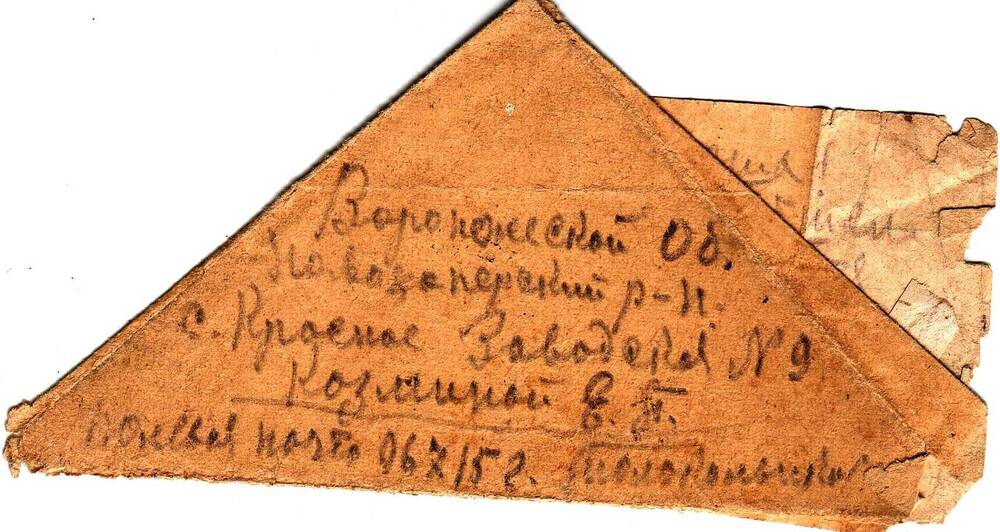 Воронежской Об.
Новохоперский р-н.
с. Красное Заводская N 9
Козминой Е. П.
Полевая почта 967/15 г.